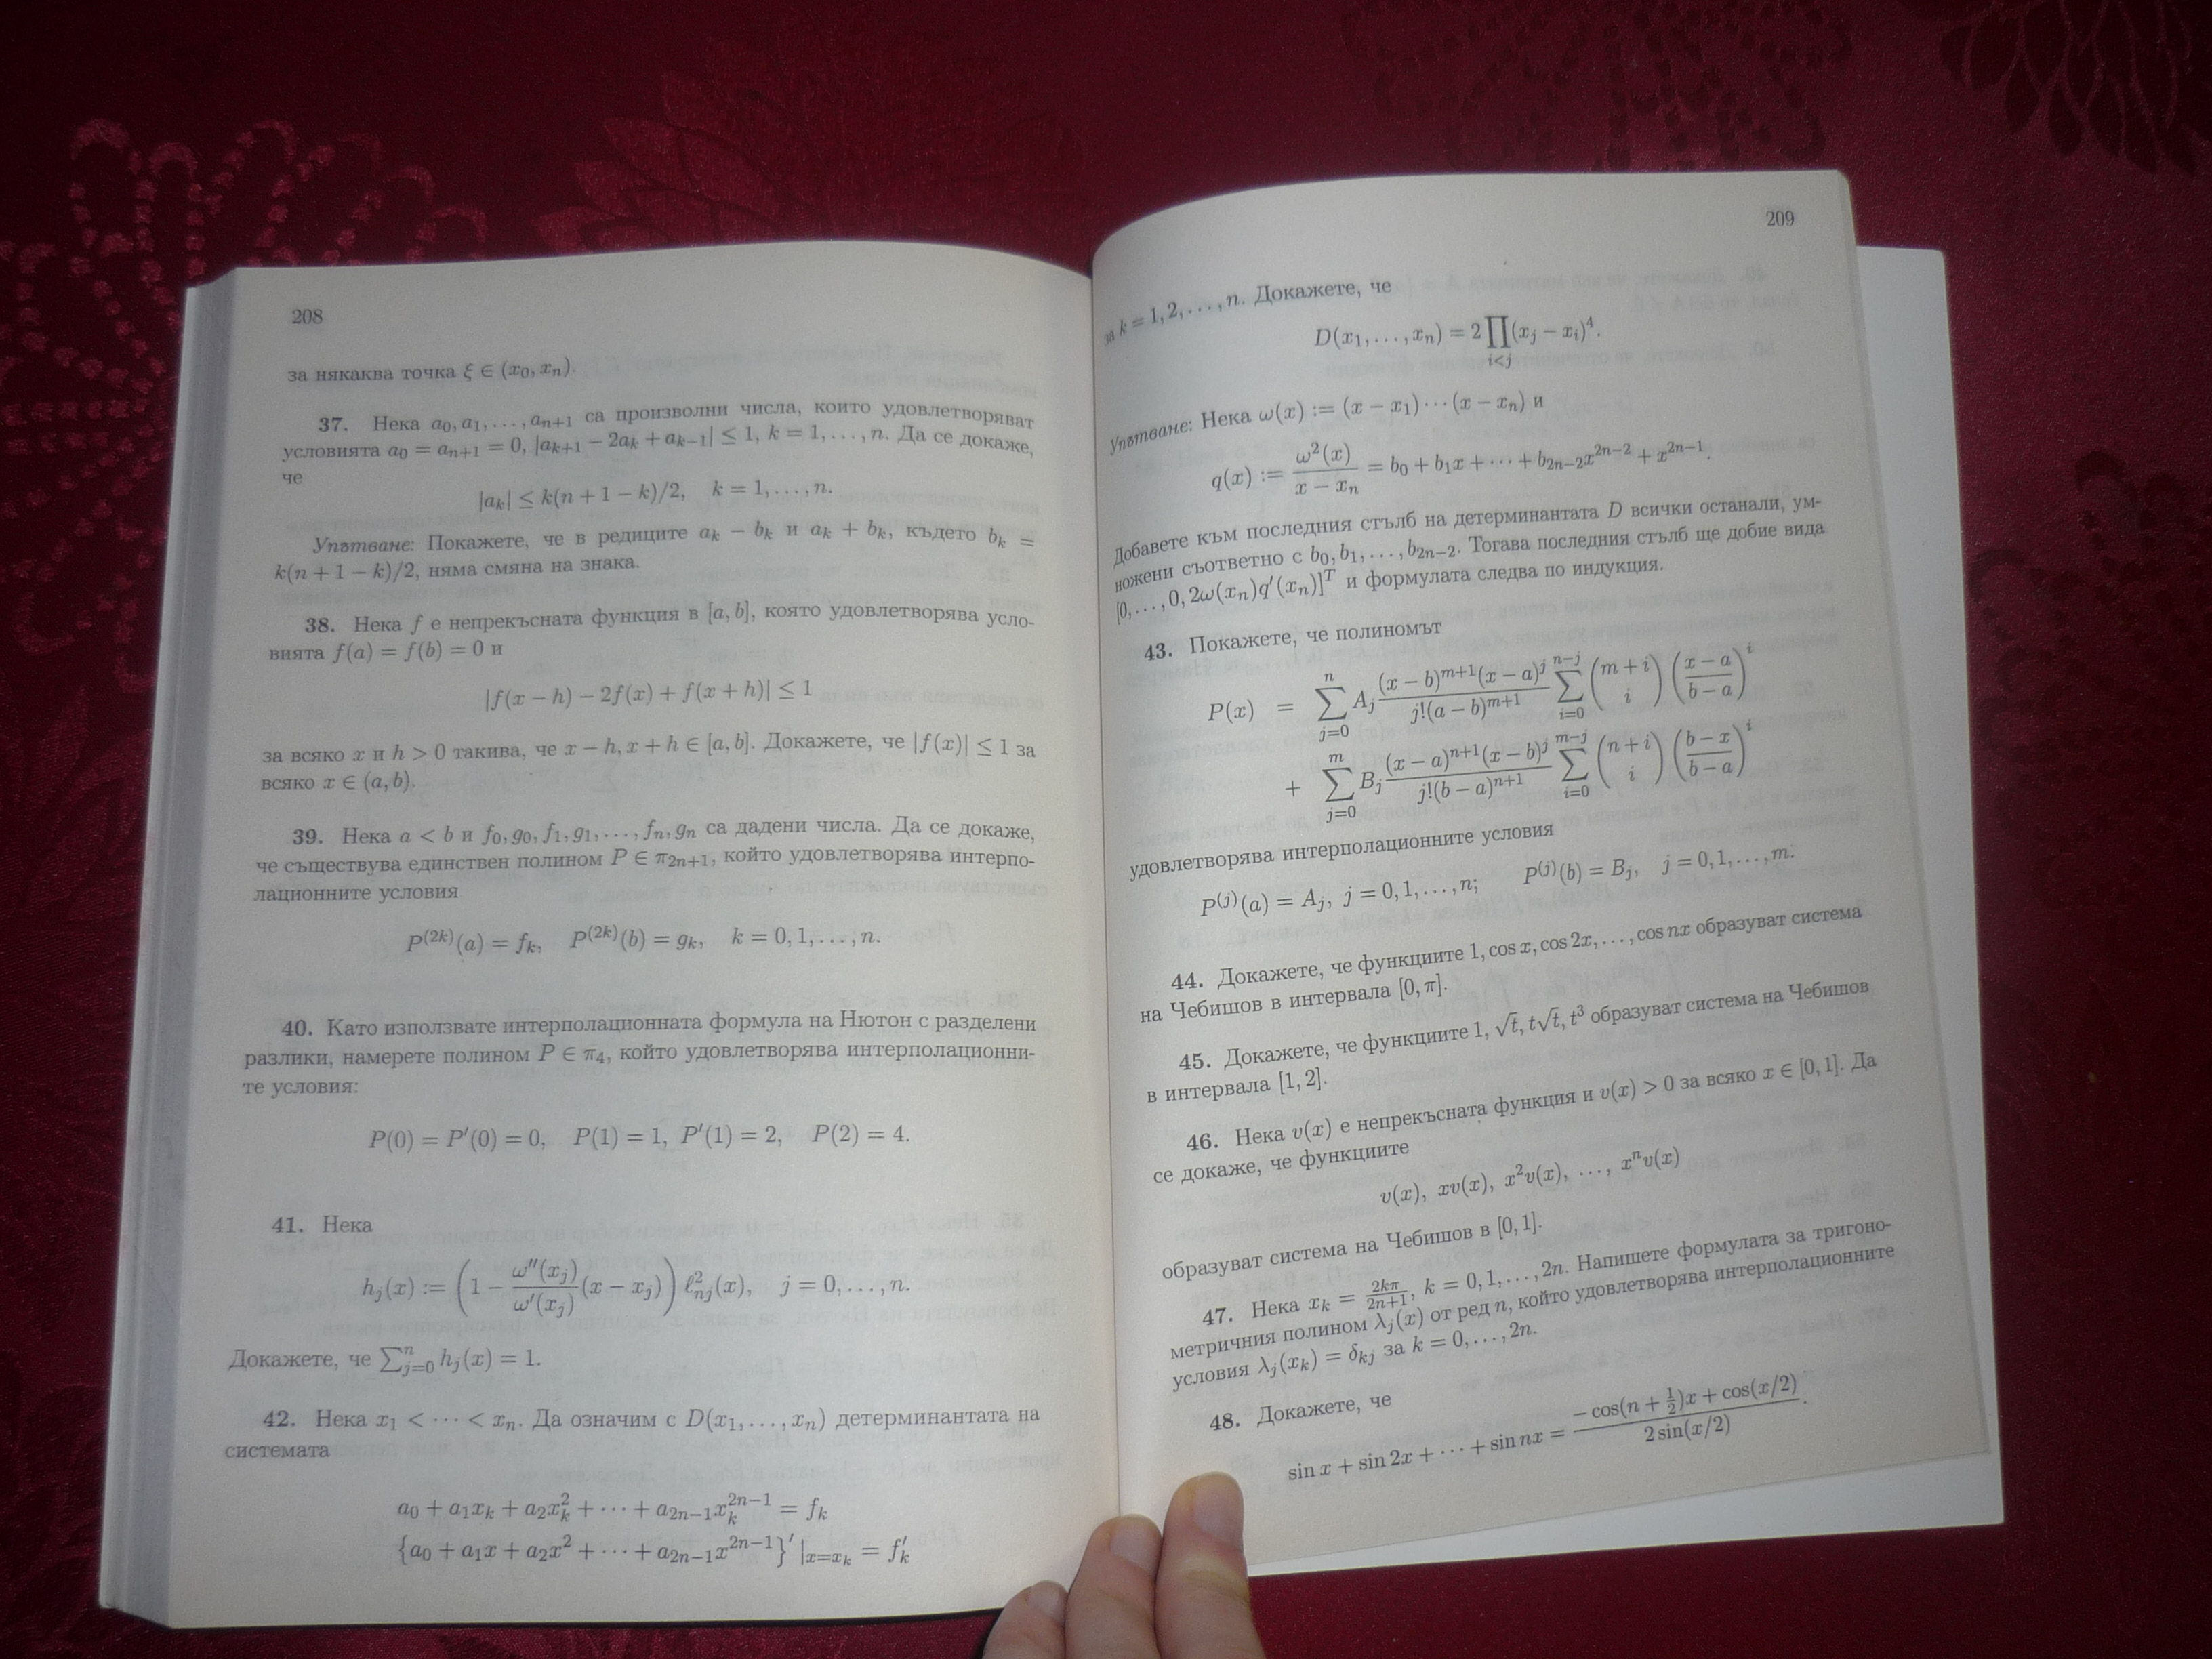 208
за някаква точка ξ ∈ (x₀, xₙ).
37. Нека a₀, a₁, . . . , aₙ₊₁ са произволни числа, които удовлетворяват
условията a₀ = aₙ₊₁ = 0, |aₖ₊₁ − 2aₖ + aₖ₋₁| ≤ 1, k = 1, . . . , n. Да се докаже,
че
|aₖ| ≤ k(n + 1 − k)/2, k = 1, . . . , n.
Упътване: Покажете, че в редиците aₖ − bₖ и aₖ + bₖ, където bₖ =
k(n + 1 − k)/2, няма смяна на знака.
38. Нека f е непрекъсната функция в [a, b], която удовлетворява усло-
вията f(a) = f(b) = 0 и
|f(x − h) − 2f(x) + f(x + h)| ≤ 1
за всяко x и h > 0 такива, че x − h, x + h ∈ [a, b]. Докажете, че |f(x)| ≤ 1 за
всяко x ∈ (a, b).
39. Нека a < b и f₀, g₀, f₁, g₁, . . . , fₙ, gₙ са дадени числа. Да се докаже,
че съществува единствен полином P ∈ π₂ₙ₊₁, който удовлетворява интерпо-
лационните условия
P⁽²ᵏ⁾(a) = fₖ, P⁽²ᵏ⁾(b) = gₖ, k = 0, 1, . . . , n.
40. Като използвате интерполационната формула на Нютон с разделени
разлики, намерете полином P ∈ π₄, който удовлетворява интерполационни-
те условия:
P(0) = P′(0) = 0, P(1) = 1, P′(1) = 2, P(2) = 4.
41. Нека
hⱼ(x) := (1 − ω″(xⱼ)/ω′(xⱼ) (x − xⱼ)) ℓ²ₙⱼ(x), j = 0, . . . , n.
Докажете, че ∑ⁿⱼ₌₀ hⱼ(x) = 1.
42. Нека x₁ < · · · < xₙ. Да означим с D(x₁, . . . , xₙ) детерминантата на
системата
a₀ + a₁xₖ + a₂xₖ² + · · · + a₂ₙ₋₁xₖ²ⁿ⁻¹ = fₖ
{a₀ + a₁x + a₂x² + · · · + a₂ₙ₋₁x²ⁿ⁻¹}′ |ₓ₌ₓₖ = f′ₖ
209
за k = 1, 2, . . . , n. Докажете, че
D(x₁, . . . , xₙ) = 2 ∏_{i<j} (xⱼ − xᵢ)⁴.
Упътване: Нека ω(x) := (x − x₁) · · · (x − xₙ) и
q(x) := ω²(x)/(x − xₙ) = b₀ + b₁x + · · · + b₂ₙ₋₂x²ⁿ⁻² + x²ⁿ⁻¹.
Добавете към последния стълб на детерминантата D всички останали, ум-
ножени съответно с b₀, b₁, . . . , b₂ₙ₋₂. Тогава последния стълб ще добие вида
[0, . . . , 0, 2ω(xₙ)q′(xₙ)]ᵀ и формулата следва по индукция.
43. Покажете, че полиномът
P(x) = ∑_{j=0}^{n} Aⱼ (x − b)^{m+1}(x − a)^j / j!(a − b)^{m+1} ∑_{i=0}^{n−j} (m + i over i) ((x − a)/(b − a))^i
+ ∑_{j=0}^{m} Bⱼ (x − a)^{n+1}(x − b)^j / j!(b − a)^{n+1} ∑_{i=0}^{m−j} (n + i over i) ((b − x)/(b − a))^i
удовлетворява интерполационните условия
P⁽ʲ⁾(a) = Aⱼ, j = 0, 1, . . . , n; P⁽ʲ⁾(b) = Bⱼ, j = 0, 1, . . . , m.
44. Докажете, че функциите 1, cos x, cos 2x, . . . , cos nx образуват система
на Чебишов в интервала [0, π].
45. Докажете, че функциите 1, √t, t√t, t³ образуват система на Чебишов
в интервала [1, 2].
46. Нека v(x) е непрекъсната функция и v(x) > 0 за всяко x ∈ [0, 1]. Да
се докаже, че функциите
v(x), xv(x), x²v(x), . . . , xⁿv(x)
образуват система на Чебишов в [0, 1].
47. Нека xₖ = 2kπ/(2n+1), k = 0, 1, . . . , 2n. Напишете формулата за тригоно-
метричния полином λⱼ(x) от ред n, който удовлетворява интерполационните
условия λⱼ(xₖ) = δₖⱼ за k = 0, . . . , 2n.
48. Докажете, че
sin x + sin 2x + · · · + sin nx = (− cos(n + ½)x + cos(x/2)) / (2 sin(x/2)).